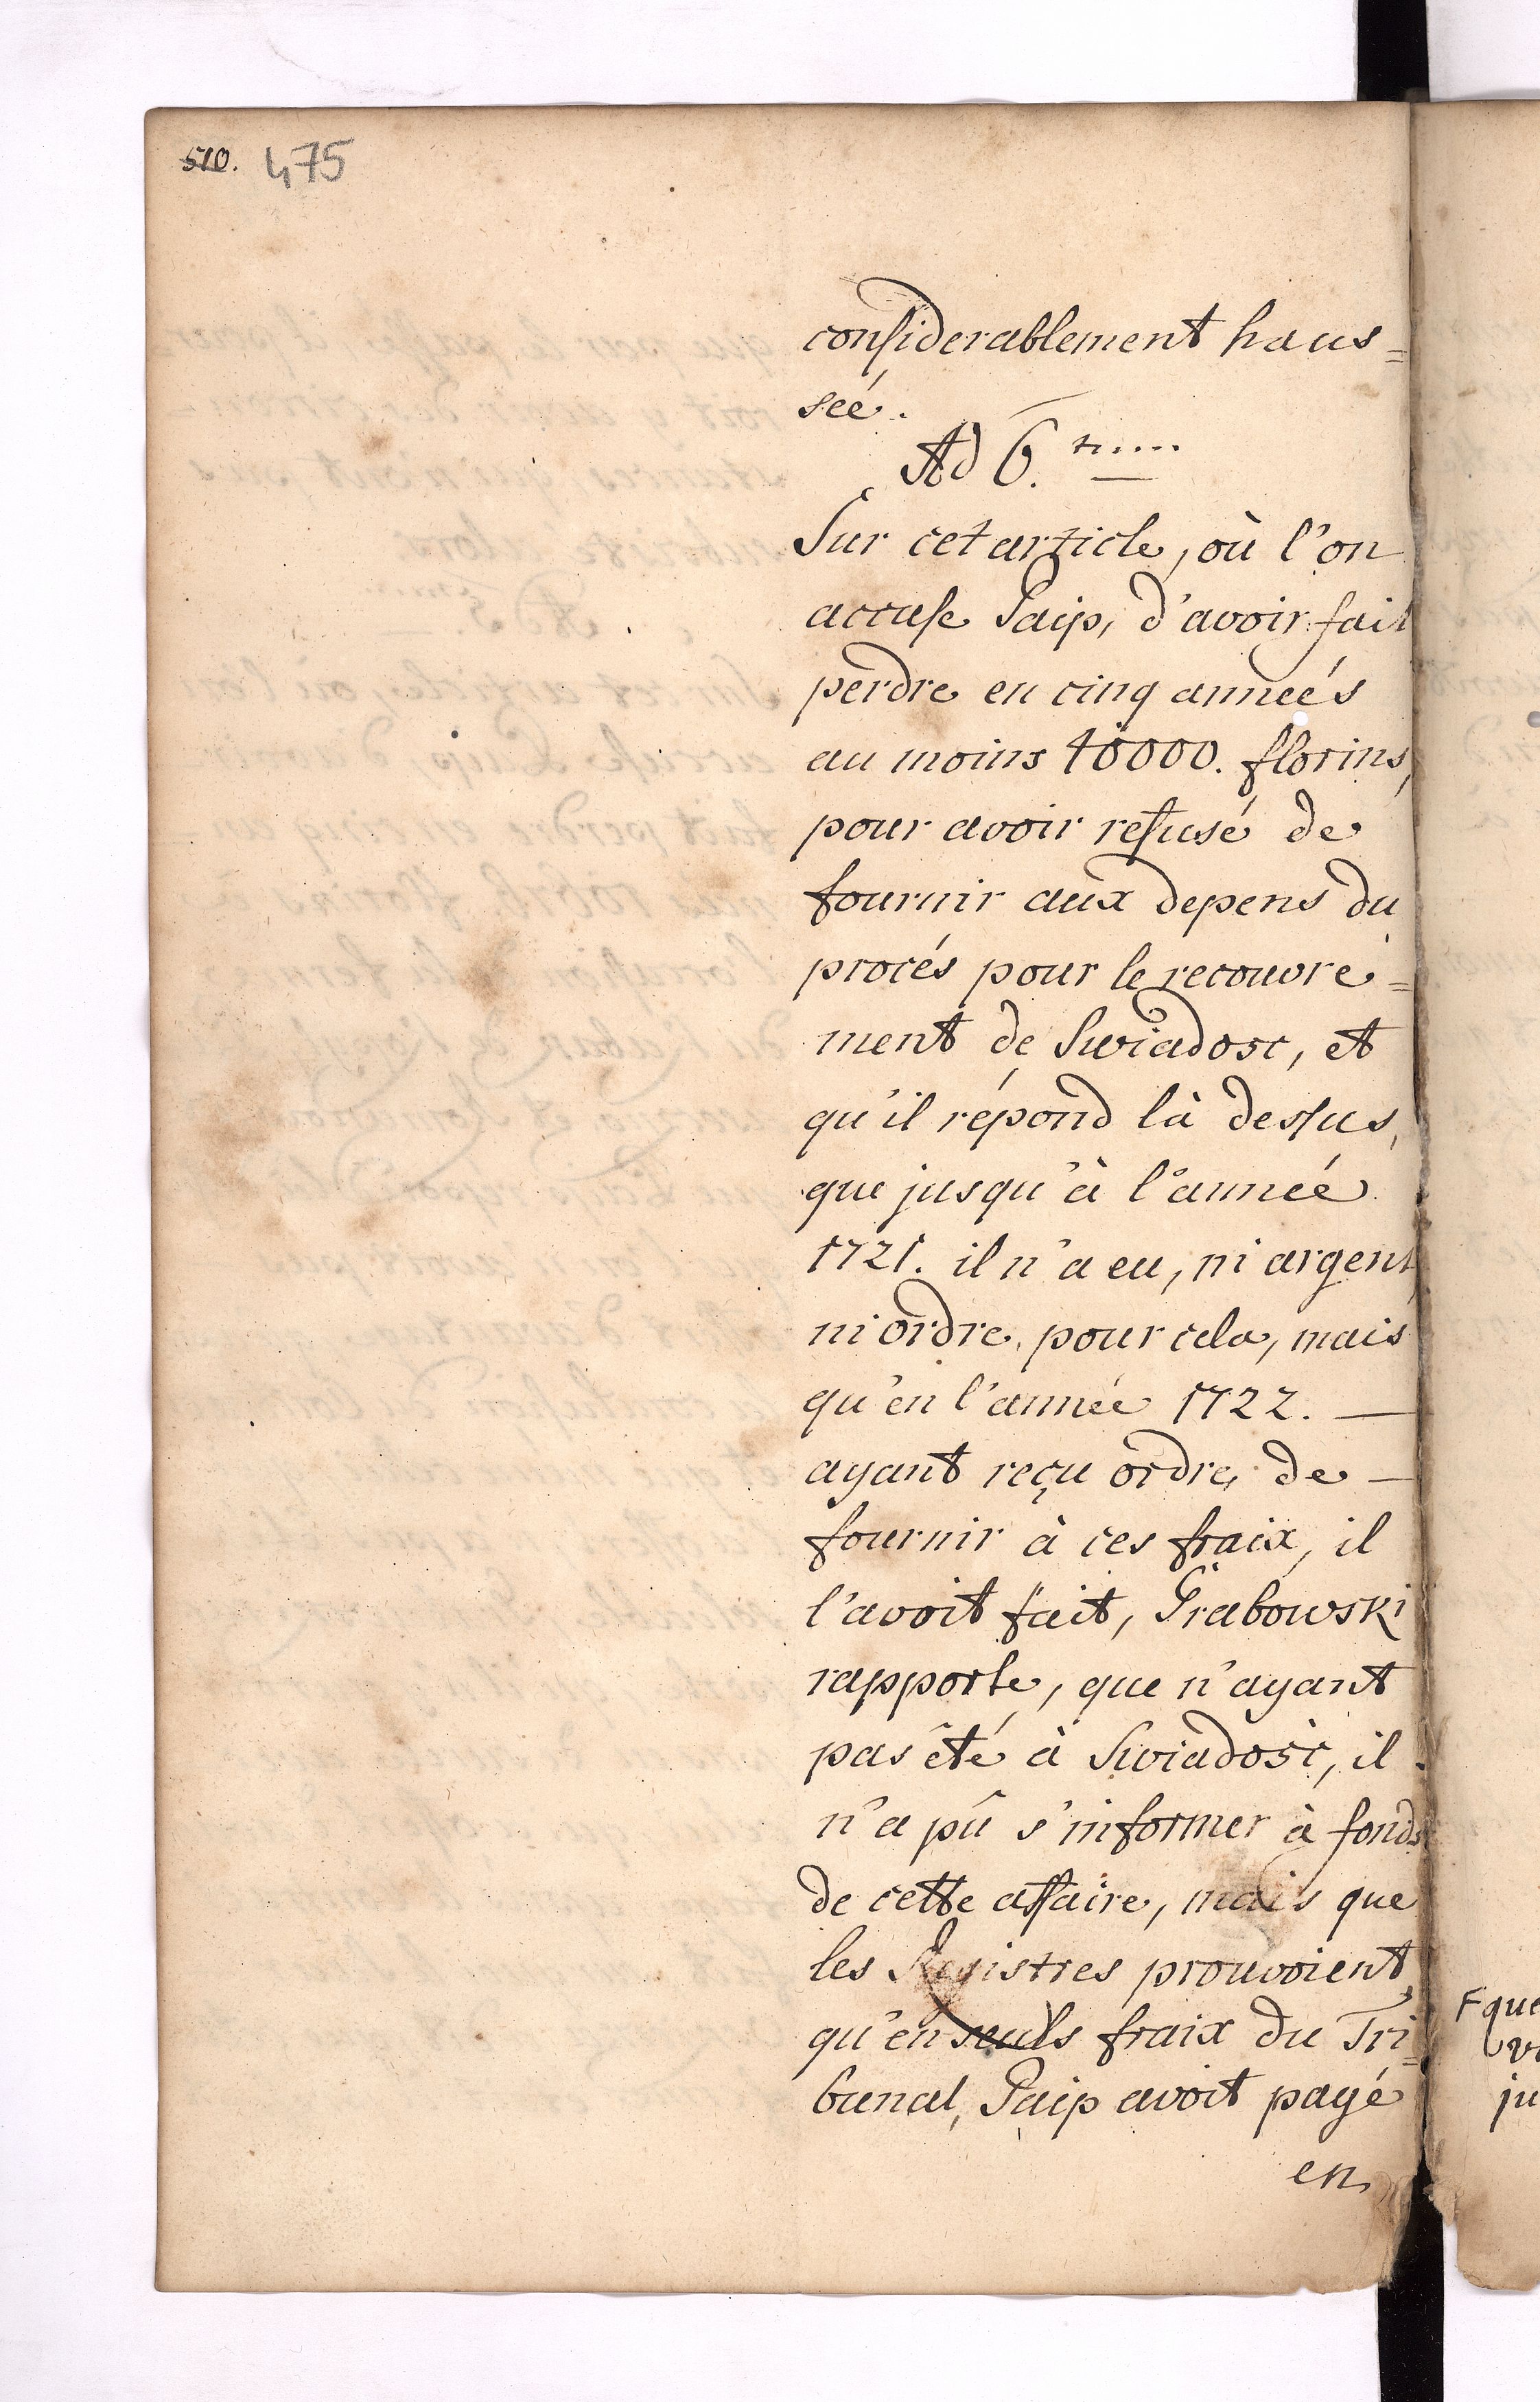 510. 475
considerablement haus=
seé.
Ad 6.tum
Sur cet article, où l'on
accuse Paip, d'avoir fait
perdre en cinq anneés
au moins 40000. florins,
pour avoir refusé de
fournir aux depens du
procés pour le recouvre=
ment de Swiadosc, et
qu'il répond là dessus,
que jusqu'à l'anneé
1721. il n'a eu, ni argent,
ni ordre, pour cela, mais
qu'en l'anneé 1722. —
ayant reçu ordre, de —
fournir à ces fraix, il
l'avoit fait, Grabowski
rapporte, que n'ayant
pas êté à Swiadosc, il
n'a pû s'informer à fonds
de cette affaire, mais que
les Registres prouvoient,
qu'en seuls fraix du Tri=
bunal, Paip avoit payé
en
F que
ju